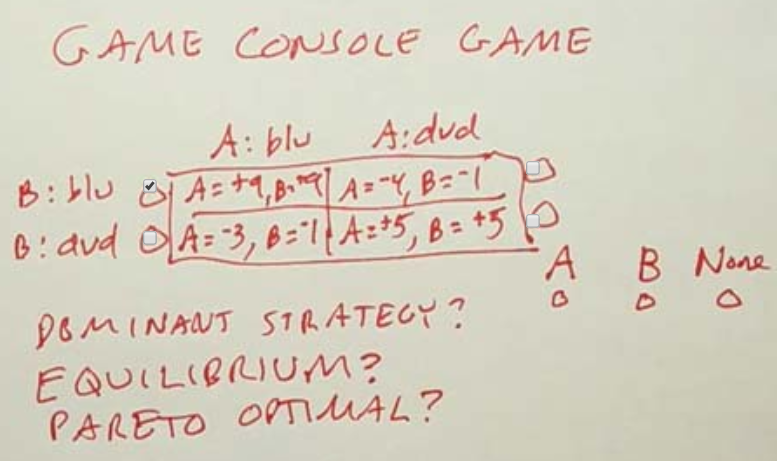 GAME CONSOLE GAME
A: blu A: dvd
B: blu A=+9, B=+9 A=-4, B=-1
B: dvd A=-3, B=-1 A=+5, B=+5
A B None
DOMINANT STRATEGY?
EQUILIBRIUM?
PARETO OPTIMAL?